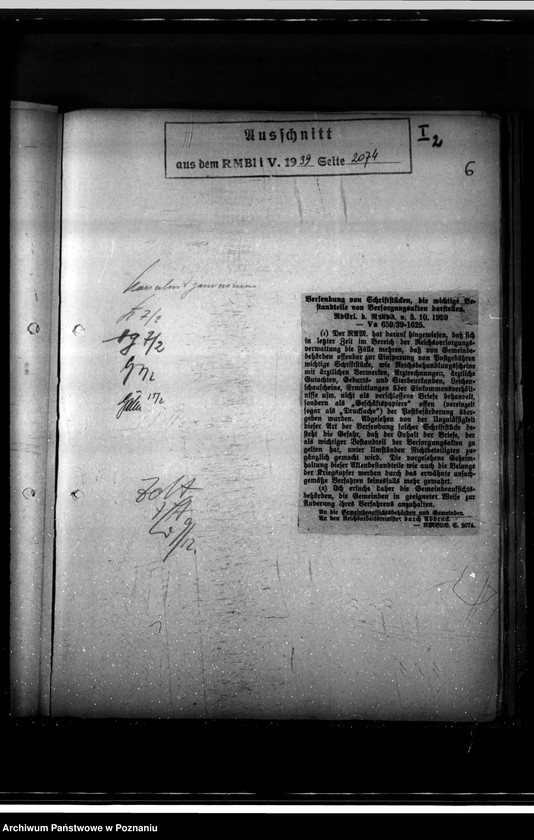 Ausschnitt
aus dem RMBliV. 1939 Seite 2074
I 2
6
Versendung von Schriftstücken, die wichtige Be-
standteile von Versorgungsakten darstellen.
RdErl. d. RMdJ. v. 5. 10. 1939
— Va 659/39-1025.
(1) Der RAM. hat darauf hingewiesen, daß sich
in letzter Zeit im Bereich der Reichsversorgungs-
verwaltung die Fälle mehren, daß von Gemeinde-
behörden offenbar zur Einsparung von Postgebühren
wichtige Schriftstücke, wie Reichsbehandlungsscheine
mit ärztlichen Vermerken, Arztrechnungen, ärztliche
Gutachten, Geburts- und Sterbeurkunden, Leichen-
schauscheine, Ermittlungen über Einkommensverhält-
nisse usw. nicht als verschlossene Briefe behandelt,
sondern als „Geschäftspapiere“ offen (vereinzelt
sogar als „Drucksache“) der Postbeförderung über-
geben wurden. Abgesehen von der Unzulässigkeit
dieser Art der Versendung solcher Schriftstücke be-
steht die Gefahr, daß der Inhalt der Briefe, der
als wichtiger Bestandteil der Versorgungsakten zu
gelten hat, unter Umständen Nichtbeteiligten zu-
gänglich gemacht wird. Die vorgesehene Geheim-
haltung dieser Aktenbestandteile wie auch die Belange
der Kriegsopfer werden durch das erwähnte unsach-
gemäße Verfahren keinesfalls mehr gewahrt.
(2) Ich ersuche daher die Gemeindeaufsichts-
behörden, die Gemeinden in geeigneter Weise zur
Änderung ihres Verfahrens anzuhalten.
An die Gemeindeaufsichtsbehörden und Gemeinden.
An den Reichsarbeitsminister durch Abdruck.
— RMBliV. S. 2074.
7/2
7/2
17/2
9/12
Archiwum Państwowe w Poznaniu